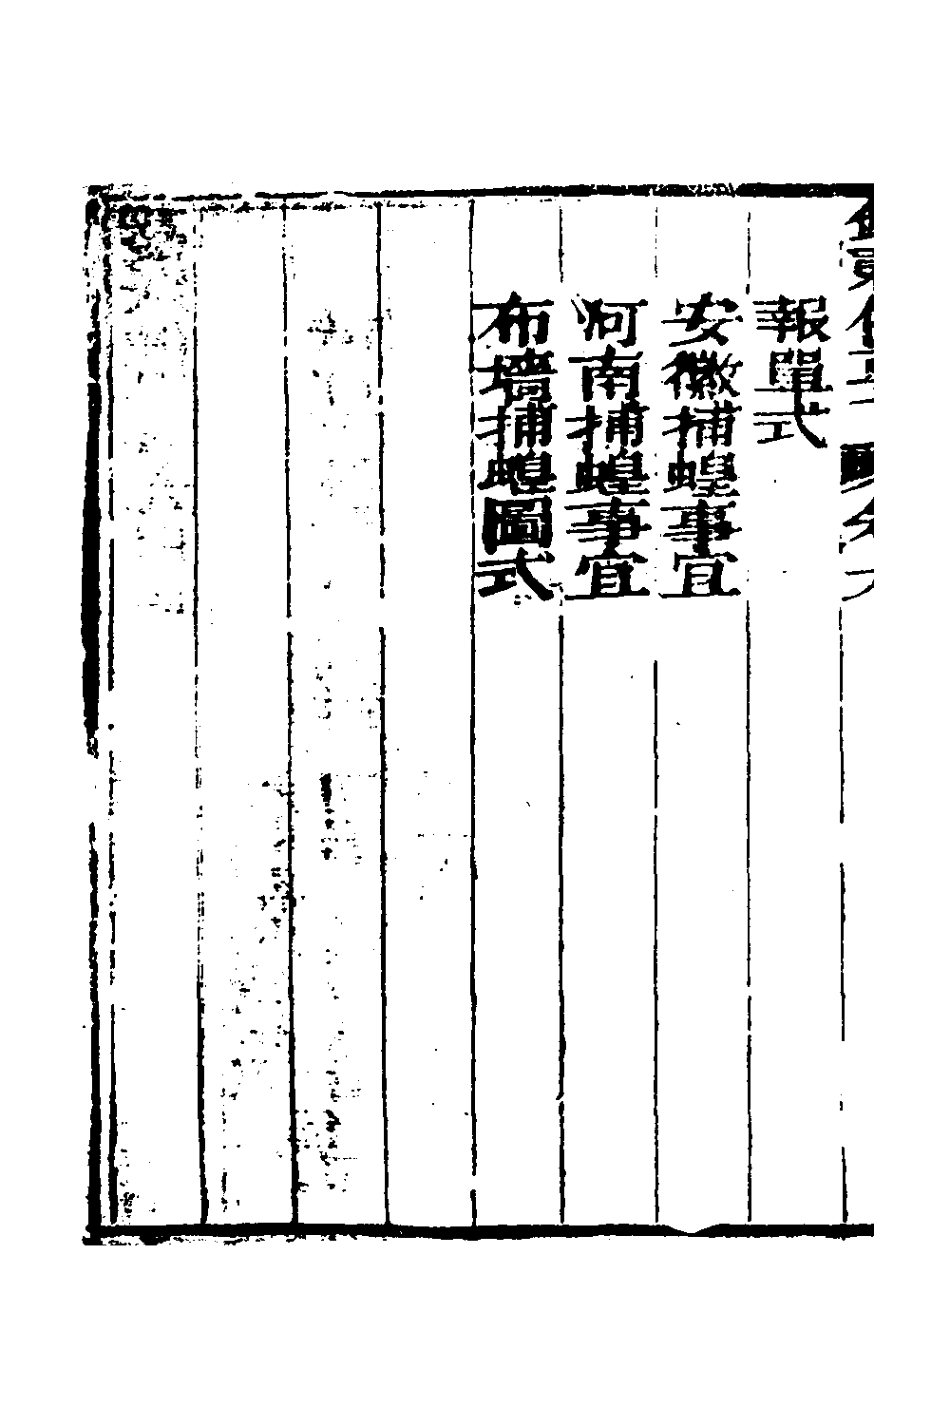 報單式
安徽捕蝗事宜
河南捕蝗事宜
布墻捕蝗圖式